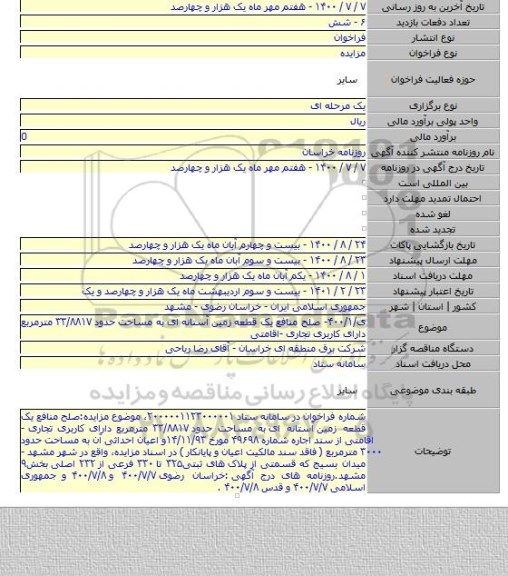 تاریخ آخرین به روز رسانی ۷ / ۷ / ۱۴۰۰ - هفتم مهر ماه یک هزار و چهارصد
تعداد دفعات بازدید ۶ - شش
نوع انتشار فراخوان
نوع فراخوان مزایده
حوزه فعالیت فراخوان سایر
نوع برگزاری یک مرحله ای
واحد پولی برآورد مالی ریال
برآورد مالی 0
نام روزنامه منتشر کننده آگهی روزنامه خراسان
تاریخ درج آگهی در روزنامه ۷ / ۷ / ۱۴۰۰ - هفتم مهر ماه یک هزار و چهارصد
بین المللی است
احتمال تمدید مهلت دارد
لغو شده
تجدید شده
تاریخ بازگشایی پاکات ۲۴ / ۸ / ۱۴۰۰ - بیست و چهارم آبان ماه یک هزار و چهارصد
مهلت ارسال پیشنهاد ۲۳ / ۸ / ۱۴۰۰ - بیست و سوم آبان ماه یک هزار و چهارصد
مهلت دریافت اسناد ۱ / ۸ / ۱۴۰۰ - یکم آبان ماه یک هزار و چهارصد
تاریخ اعتبار پیشنهاد ۲۳ / ۲ / ۱۴۰۱ - بیست و سوم اردیبهشت ماه یک هزار و چهارصد و یک
کشور | استان | شهر جمهوری اسلامی ایران - خراسان رضوی - مشهد
موضوع ی/۴۰۰/۱- صلح منافع یک قطعه زمین آستانه ای به مساحت حدود ۳۳/۸۸۱۷ مترمربع
دارای کاربری تجاری -اقامتی
دستگاه مناقصه گزار شرکت برق منطقه ای خراسان - آقای رضا ریاحی
محل دریافت اسناد سامانه ستاد
طبقه بندی موضوعی سایر
توضیحات شماره فراخوان در سامانه ستاد ۲۰۰۰۰۰۱۱۲۳۰۰۰۰۰۱، موضوع مزایده:صلح منافع یک
قطعه زمین آستانه ای به مساحت حدود ۳۳/۸۸۱۷ مترمربع دارای کاربری تجاری -
اقامتی از سند اجاره شماره ۴۹۶۹۸ مورخ ۱۴/۱۱/۹۳و اعیان احداثی آن به مساحت حدود
۳۰۰۰ مترمربع ( فاقد سند مالکیت اعیان و پایانکار ) در اسناد مزایده، واقع در شهر مشهد -
میدان بسیج که قسمتی از پلاک های ثبتی۳۲۵ تا ۳۳۰ فرعی از ۲۳۲ اصلی بخش۹
مشهد.روزنامه های درج آگهی :خراسان رضوی ۴۰۰/۷/۷ و ۴۰۰/۷/۸ و جمهوری
اسلامی ۴۰۰/۷/۷ و قدس ۴۰۰/۷/۸ .
پایگاه اطلاع رسانی مناقصه و مزایده